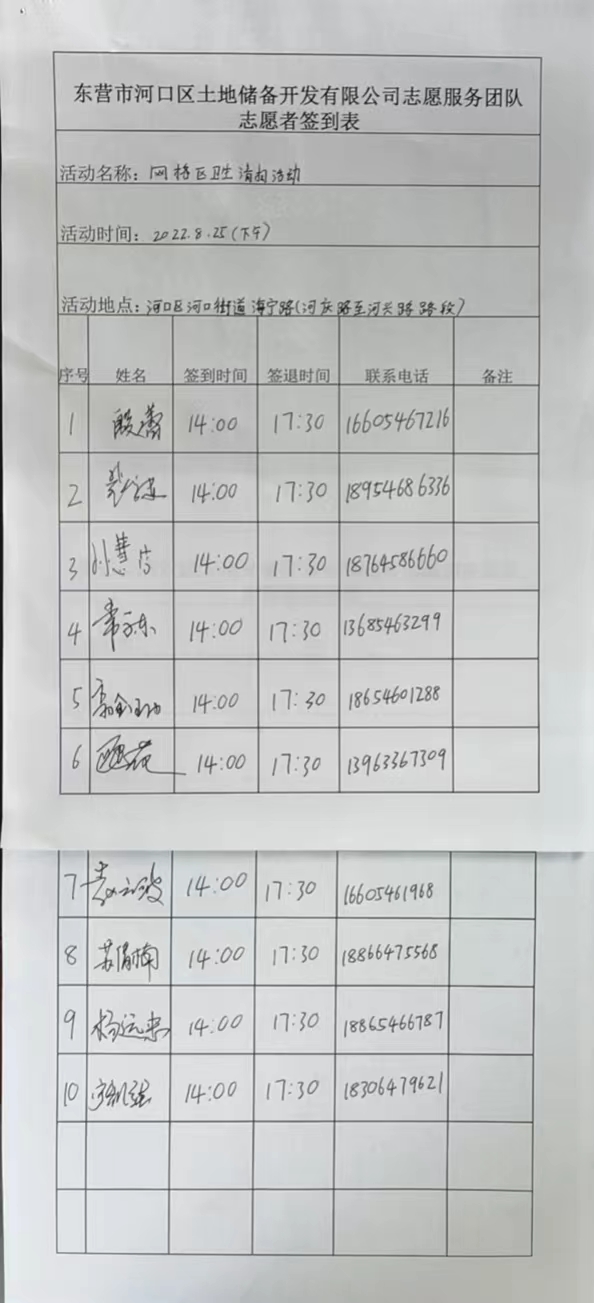 东营市河口区土地储备开发有限公司志愿服务团队
志愿者签到表
活动名称：网格区卫生清扫活动
活动时间：2022.8.25(下午)
活动地点：河口区河口街道海宁路(河庆路至河兴路路段)
序号 姓名 签到时间 签退时间 联系电话 备注
1 殷蕾 14:00 17:30 16605467216
2 14:00 17:30 18954686336
3 孙慧 14:00 17:30 18764586660
4 14:00 17:30 13685463299
5 14:00 17:30 18654601288
6 14:00 17:30 13963367309
7 14:00 17:30 16605461968
8 苏倩楠 14:00 17:30 18866475568
9 杨远来 14:00 17:30 18865466787
10 14:00 17:30 18306479621